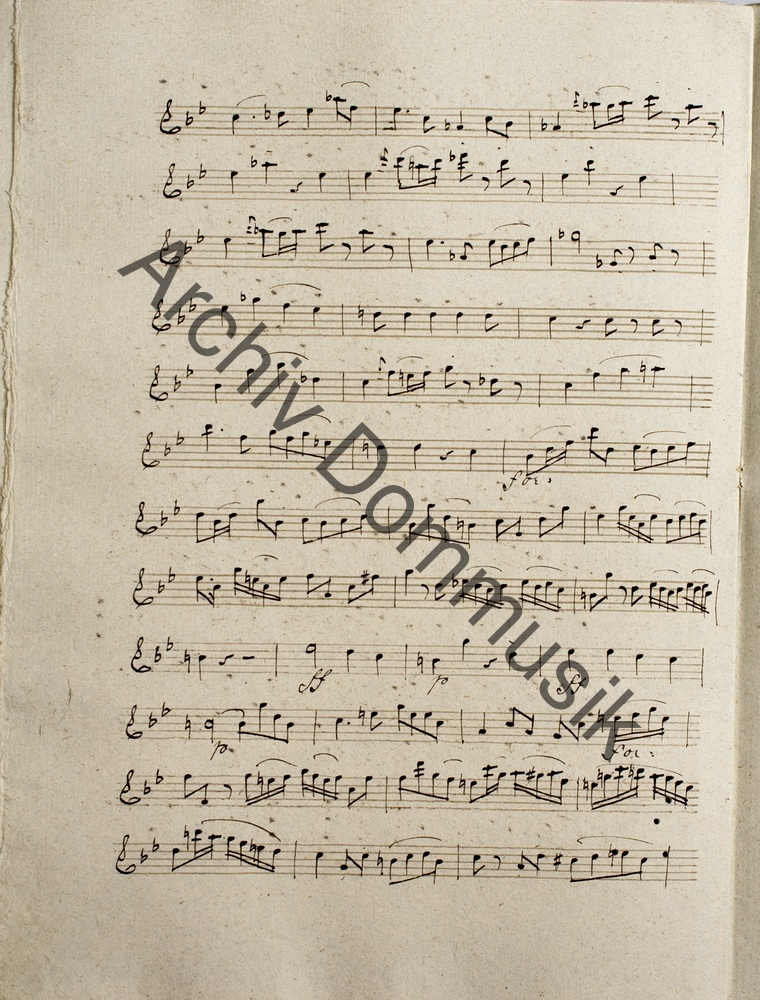 Archiv Dommusik
for:
ff
p
ff
p
for: